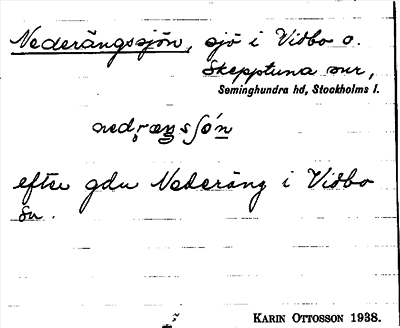 Nederängssjön, sjö i Vidbo o.
Skepptuna snr,
Seminghundra hd, Stockholms l.
efter gdn Nederäng i Vidbo
sn.
KARIN OTTOSSON 1938.